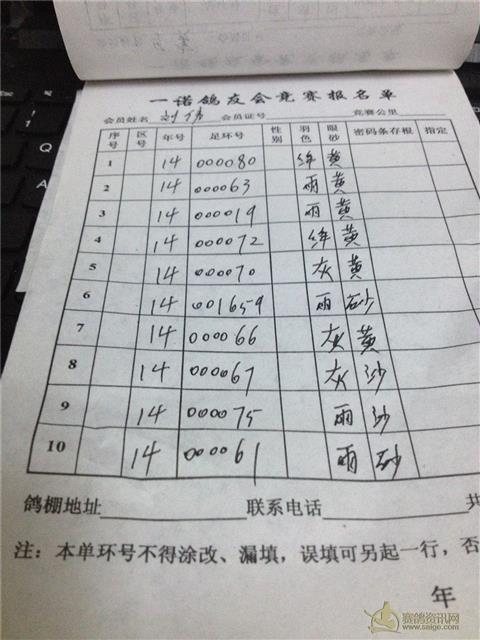 一诺鸽友会竞赛报名单
会员姓名 刘伟 会员证号 竞赛公里
序号 区号 年号 足环号 性别 羽色 眼砂 密码条存根 指定
1 14 000080 绛 黄
2 14 000063 雨 黄
3 14 000019 雨 黄
4 14 000072 绛 黄
5 14 000070 灰 黄
6 14 001659 雨 砂
7 14 000066 灰 黄
8 14 000067 灰 沙
9 14 000075 雨 沙
10 14 000061 雨 砂
鸽棚地址 联系电话 共
注：本单环号不得涂改、漏填，误填可另起一行，否
年
赛鸽资讯网
www.saige.com